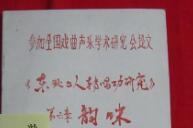 参加全国戏曲声乐学术研究会论文
《东北二人转唱功研究》
第六章 韵味